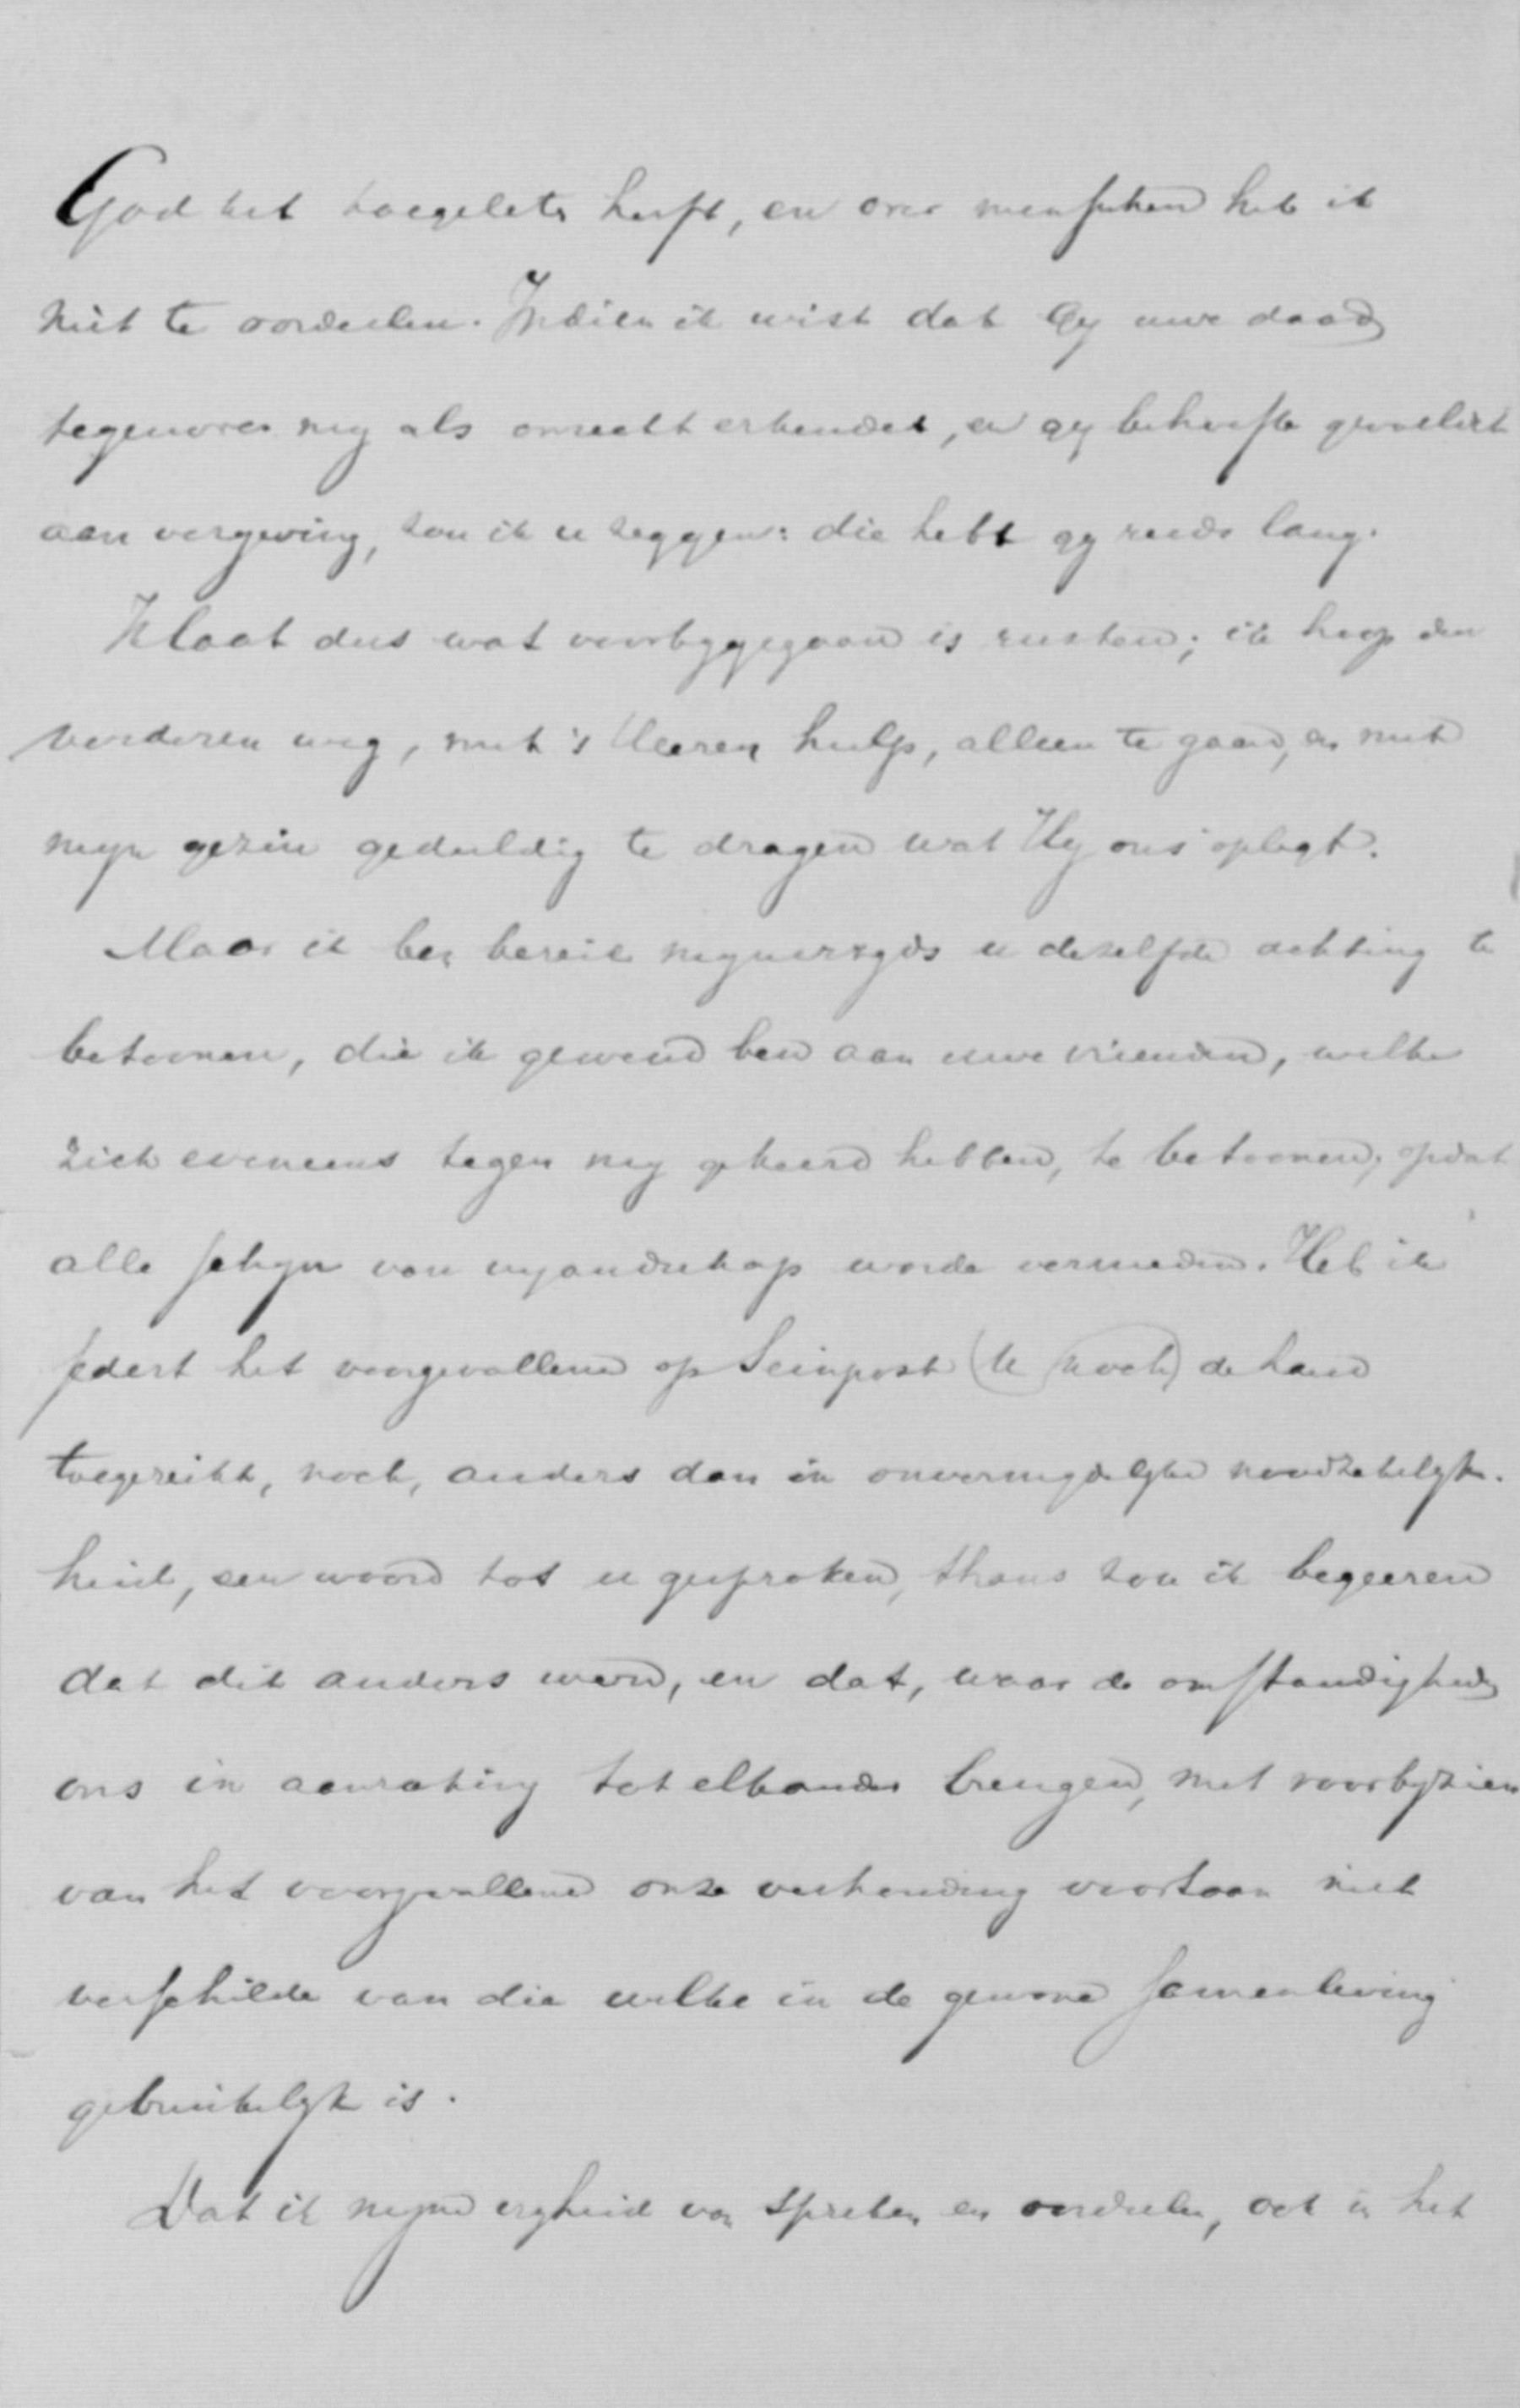 God het toegelaten heeft, en over menschen heb ik
niet te oordeelen. Indien ik wist dat Gy uwe daad
tegenover my als onrecht erkendet, en gy behoefte gevoeldet
aan vergeving, zou ik u zeggen: die hebt gy reeds lang.
Ik laat dus wat voorbygegaan is rusten; ik hoop den
verderen weg, met 's Heeren hulp, alleen te gaan, en met
myn gezin geduldig te dragen wat Hy ons oplegt.
Maar ik ben bereid mynerzyds u dezelfde achting te
betoonen, die ik gewend ben aan uwe vrienden, welke
zich eveneens tegen my gekeerd hebben, te betoonen, opdat
alle schyn van vyandschap worde vermeden. Heb ik
sedert het voorgevallene op Seinpost (U noch) de hand
toegereikt, noch, anders dan in onvermydelyke noodzakelyk-
heid, een woord tot u gesproken, thans zou ik begeeren
dat dit anders werd, en dat, waar de omstandigheden
ons in aanraking tot elkander brengen, met voorbyzien
van het voorgevallene onze verhouding voortaan niet
verschilde van die welke in de gewone samenleving
gebruikelyk is.
Dat ik myne vryheid van spreken en oordeelen, ook in het